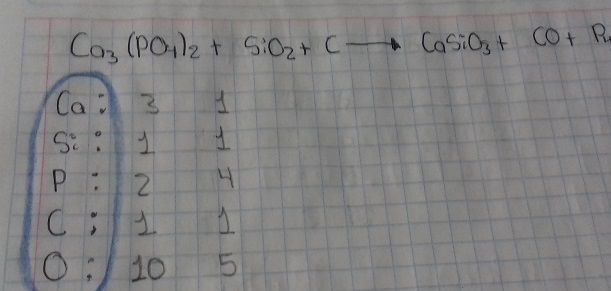 Ca₃(PO₄)₂ + SiO₂ + C → CaSiO₃ + CO + P₄
Ca: 3 1
Si: 1 1
P: 2 4
C: 1 1
O: 10 5